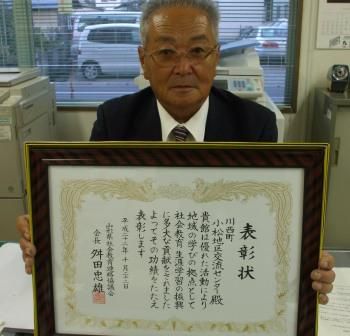 表彰状
川西町
小松地区交流センター殿
貴館は優れた活動により
地域の学びの拠点として
社会教育 生涯学習の振興
に多大な貢献をされました
よってその功績をたたえ
表彰します
平成二十二年 十月二十二日
山形県社会教育連絡協議会
会長 舛田忠雄